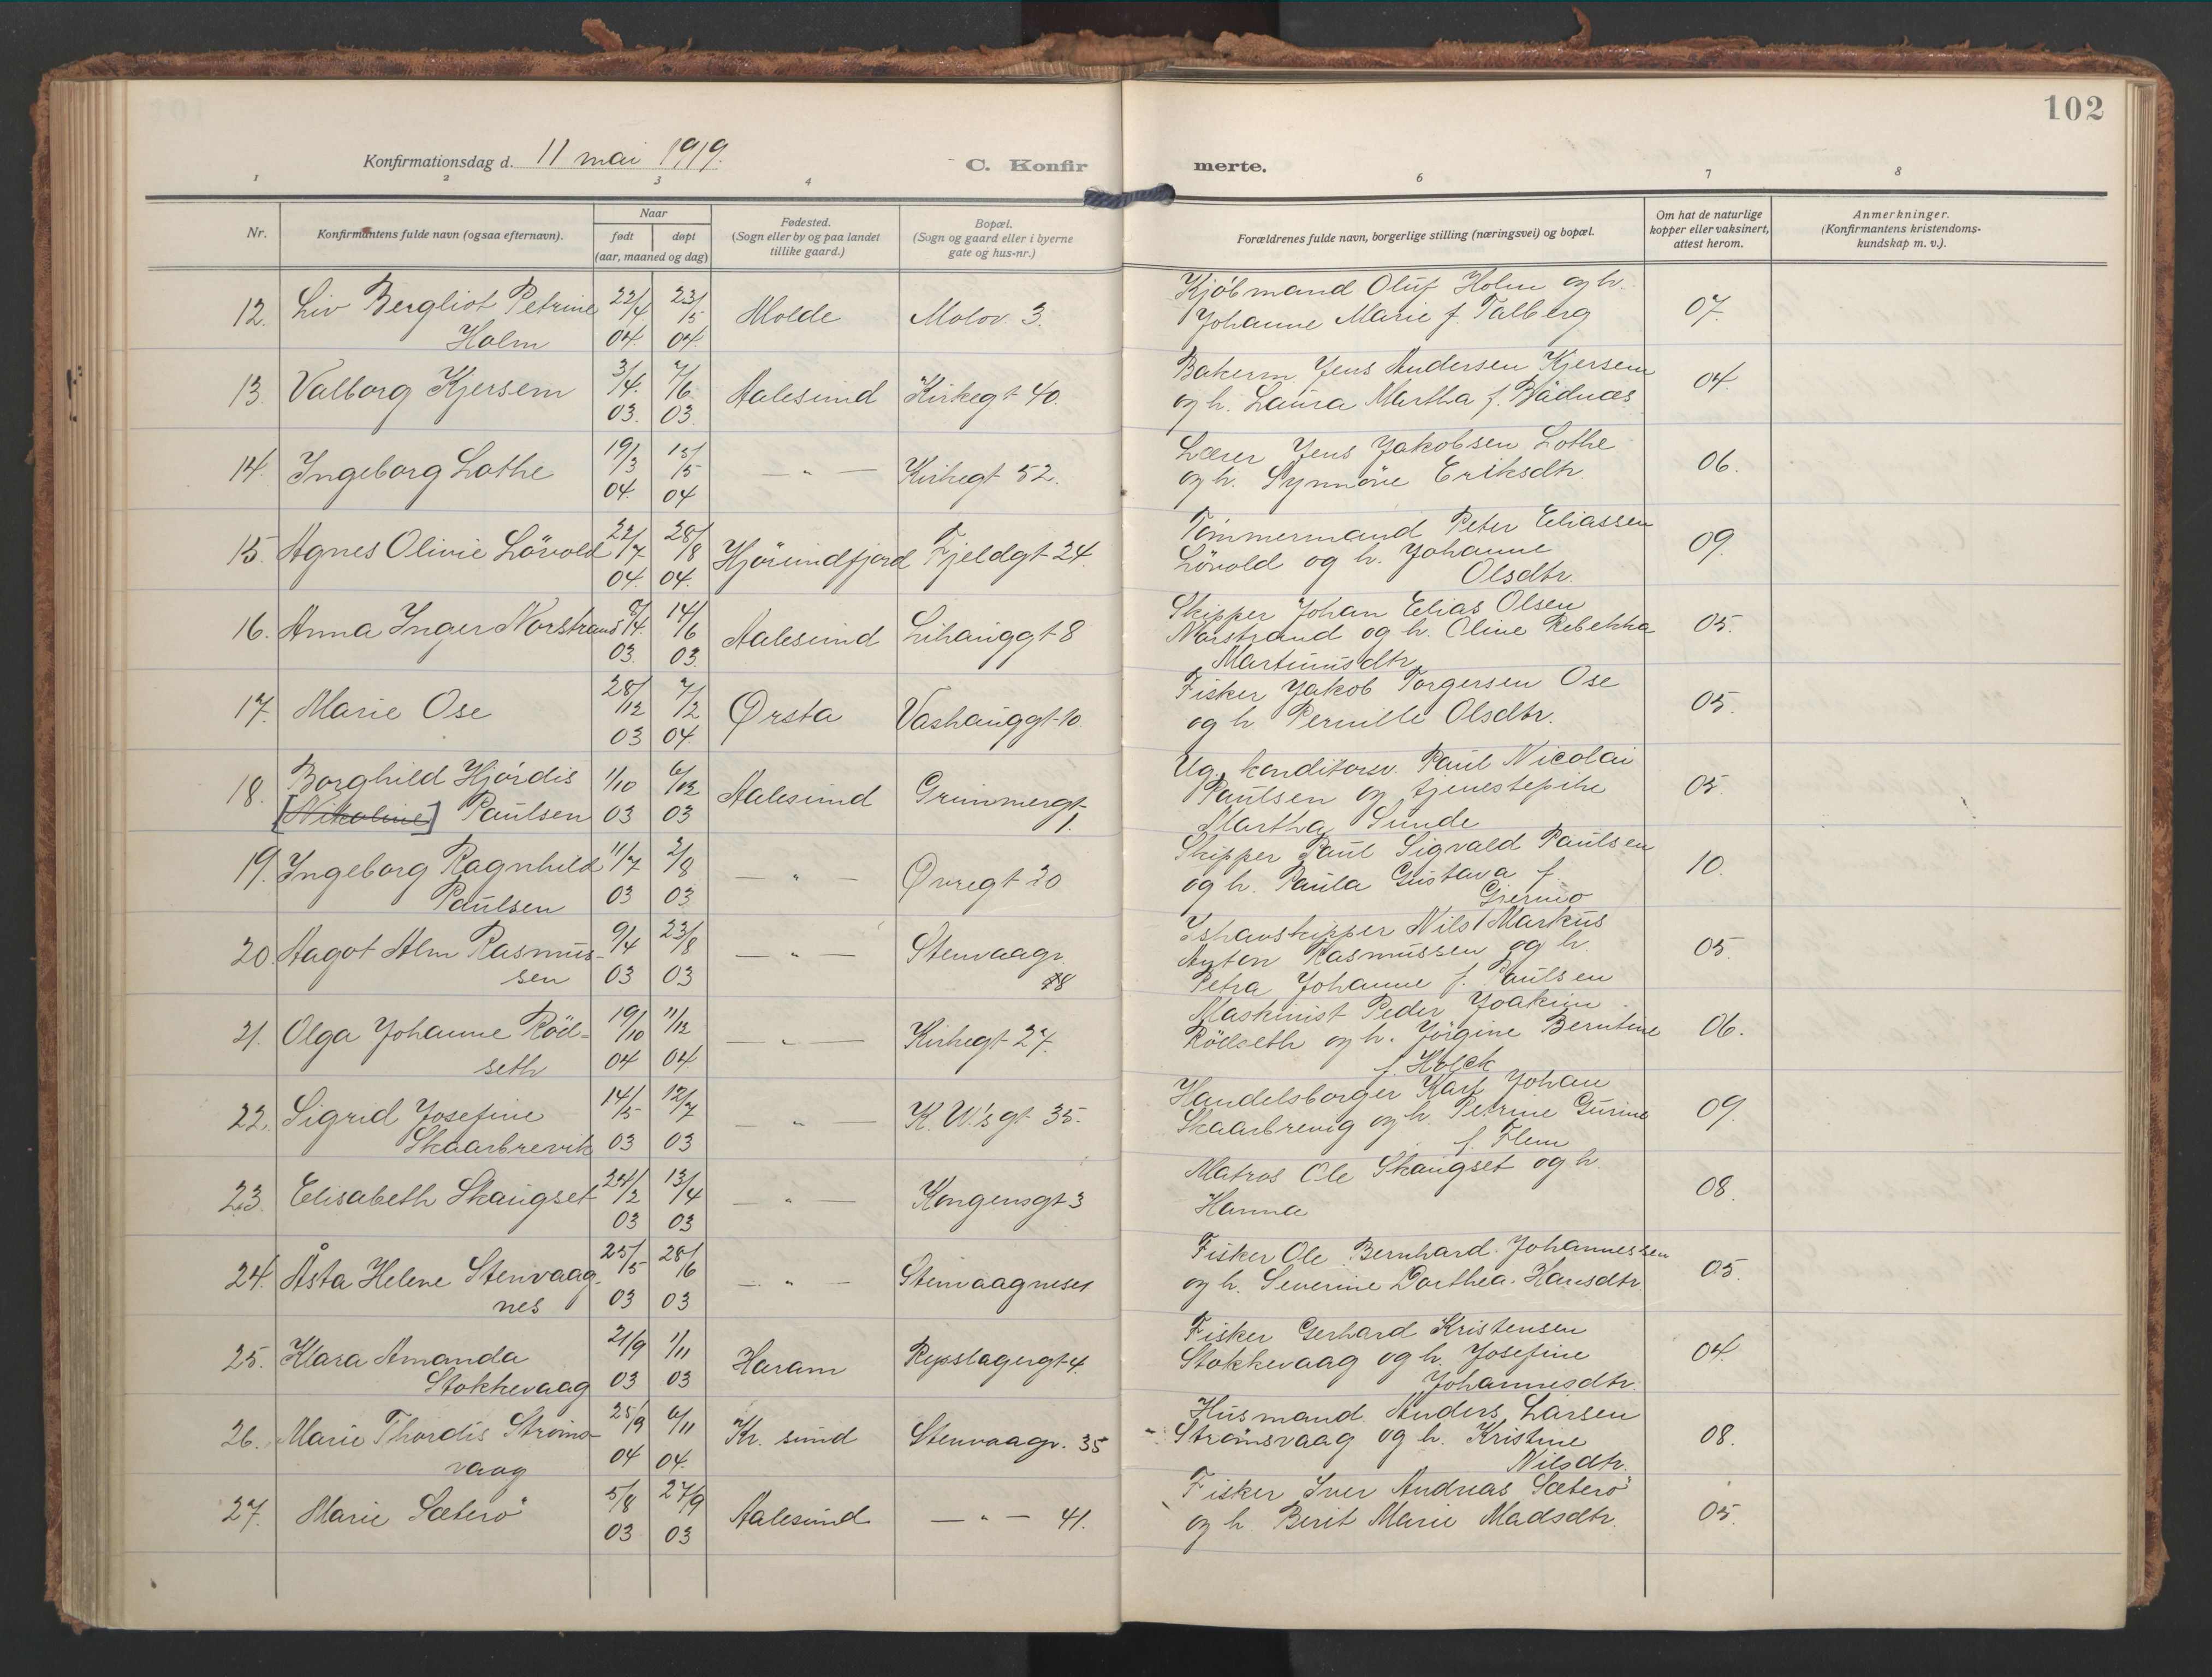 102
Konfirmationsdag d. 11 mai 1919.
C. Konfir merte.
1 2 3 4 6 7 8
Nr.
Konfirmantens fulde navn (ogsaa efternavn).
Naar
født døpt
(aar, maaned og dag)
Fødested.
(Sogn eller by og paa landet
tillike gaard.)
Bopæl.
(Sogn og gaard eller i byerne
gate og hus-nr.)
Forældrenes fulde navn, borgerlige stilling (næringsvei) og bopæl.
Om hat de naturlige
kopper eller vaksinert,
attest herom.
Anmerkninger.
(Konfirmantens kristendoms-
kundskap m. v.).
12. Liv Bergliot Petrine 22/4 23/5 Molde Molov. 3. Kjöbmand Oluf Holm og h.
Holm 04. 04. Johanne Marie f. Talberg 07.
13. Valborg Kjersem 3/4. 7/6. Aalesund Kirkegt 40. Bakerm. Jens Andersen Kjersem
03. 03. og h. Laura Martha f. Bådnæs 04.
14. Ingeborg Lothe 19/3 15/5 — " — Kirkegt 52. Lærer Jens Jakobsen Lothe
04. 04 og h. Synnöve Eriksdtr. 06.
15. Agnes Olivie Lövold 22/7 28/8 Hjörundfjord Fjeldgt 24. Tömmermand Peter Eliassen
04. 04. Lövold og h. Johanne 09.
Olsdtr.
16. Anna Inger Norstrand 8/4. 14/6 Aalesund Lihauggt 8 Skipper Johan Elias Olsen
03. 03. Norstrand og h. Oline Rebekka 05.
Martinusdtr.
17. Marie Ose 28/12 7/2 Ørsta Vashauggt 10. Fisker Jakob Torgersen Ose
03 04 og h. Pernille Olsdtr. 05.
18. Borghild Hjördis 1/10 6/12 Aalesund Grimmergt Ug. konditorsv. Paul Nicolai
[Nikoline] Paulsen 03 03 1. Paulsen og tjenestepike 05.
Martha Sunde
19. Ingeborg Ragnhild 11/7 2/8 — " — Øvregt 20 Skipper Paul Sigvald Paulsen
Paulsen 03 03 og h. Paula Gustava f. 10.
20. Aagot Alm Rasmus- 9/4 23/8 — " — Stenvaagv. Ishavskipper Nils Markus
sen 03 03 Anton Rasmussen og h. 05.
Petra Johanne f. Paulsen
21. Olga Johanne Röd- 19/10 11/12 — " — Kirkegt 27. Maskinist Peder Joakim
seth 04 04 Rödseth og h. Jörgine Berntine 06.
f. Holck
22. Sigrid Josefine 14/5 12/7 — " — K. W.'s gt 35. Handelsborger Karl Johan
Skaarbrevik 03 03 Skaarbrevig og h. Petrine Gurine 09.
f. Flem
23. Elisabeth Skaugset 24/2 13/4 — " — Kongensgt 3 Matros Ole Skaugset og h.
03 03 Hanna 08.
24. Åsta Helene Stenvaag- 25/5 28/6 — " — Stenvaagneset Fisker Ole Bernhard Johannessen
nes 03 03 og h. Severine Dorthea Hansdtr. 05.
25. Klara Amanda 21/9 1/11 Haram Repslagergt 4. Fisker Gerhard Kristensen
Stokkevaag 03 03 Stokkevaag og h. Josefine 04.
Johannesdtr.
26. Marie Thordis Ströms- 25/9 6/11 Kr. sund Stenvaagv. 35 Husmand Anders Larsen
vaag 04 04. Strömsvaag og h. Kristine 08.
Nilsdtr.
27. Marie Sæterö 5/8 27/9 Aalesund — " — 41. Fisker Iver Andreas Sæterö
03 03 og h. Berit Marie Madsdtr. 05.